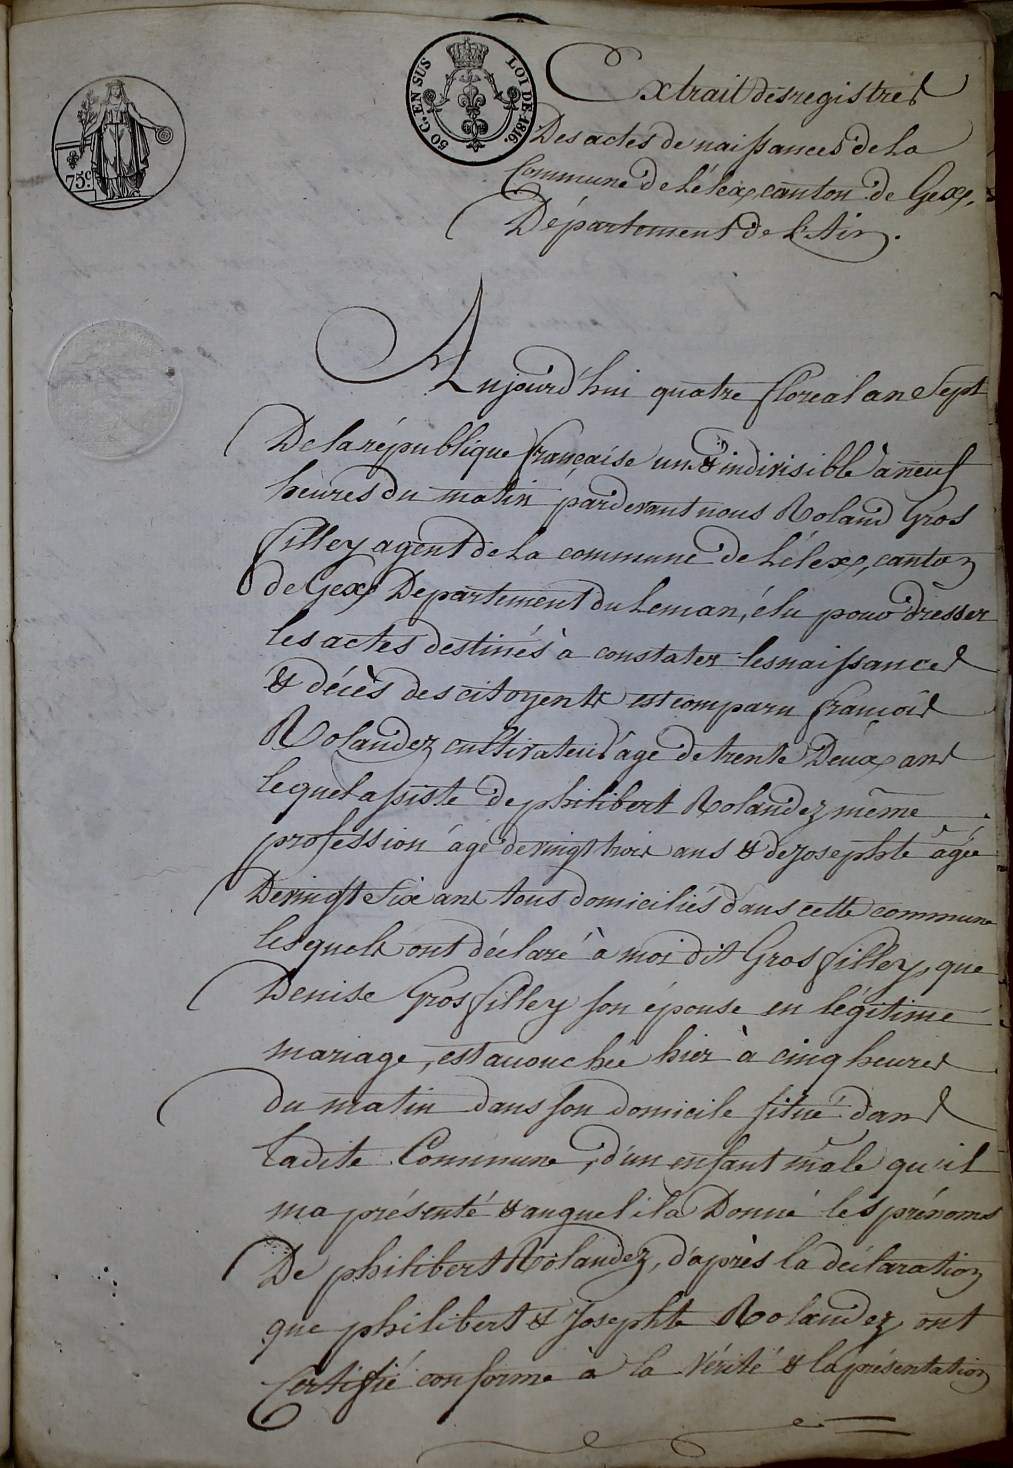 50 C. EN SUS
LOI DE 1816.
75c.
Extrait des registres
Des actes de naissances de la
Commune de Lélex, canton de Gex,
Département de l'Ain.
Aujourd'hui quatre floreal an Sept
De la république française une & indivisible à neuf
heures du matin pardevant nous Roland Gros
filley agent de la commune de Lélex, canton
de Gex Département du Leman, élu pour dresser
les actes destinés à constater les naissances
& décès des citoyens est comparu francois
Rolandez cultivateur âgé de trente Deux ans
lequel assisté de philibert Rolandez même
profession âgé de vingt trois ans & de Josephte âgée
De vingt Six ans tous domiciliés dans cette commune
lesquels ont déclaré à moi dit Gros filley, que
Denise Gros filley son épouse en légitime
mariage, est accouchée hier à cinq heures
du matin dans son domicile situé dans
ladite Commune, d'un enfant mâle qu'il
ma présenté & auquel il a Donné les prénoms
De philibert Rolandez, d'après la déclaration
que philibert & Josephte Rolandez ont
Certifié conforme à la vérité & la présentation